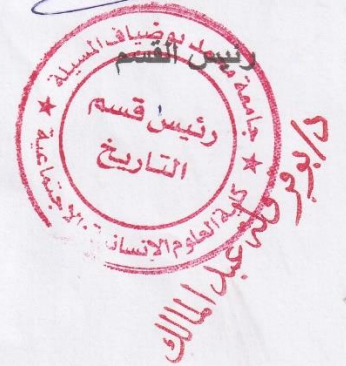 رئيس القسم
جامعة محمد بوضياف المسيلة
رئيس قسم
التاريخ
كلية العلوم الإنسانية و الاجتماعية
د/بوبر عبد المالك